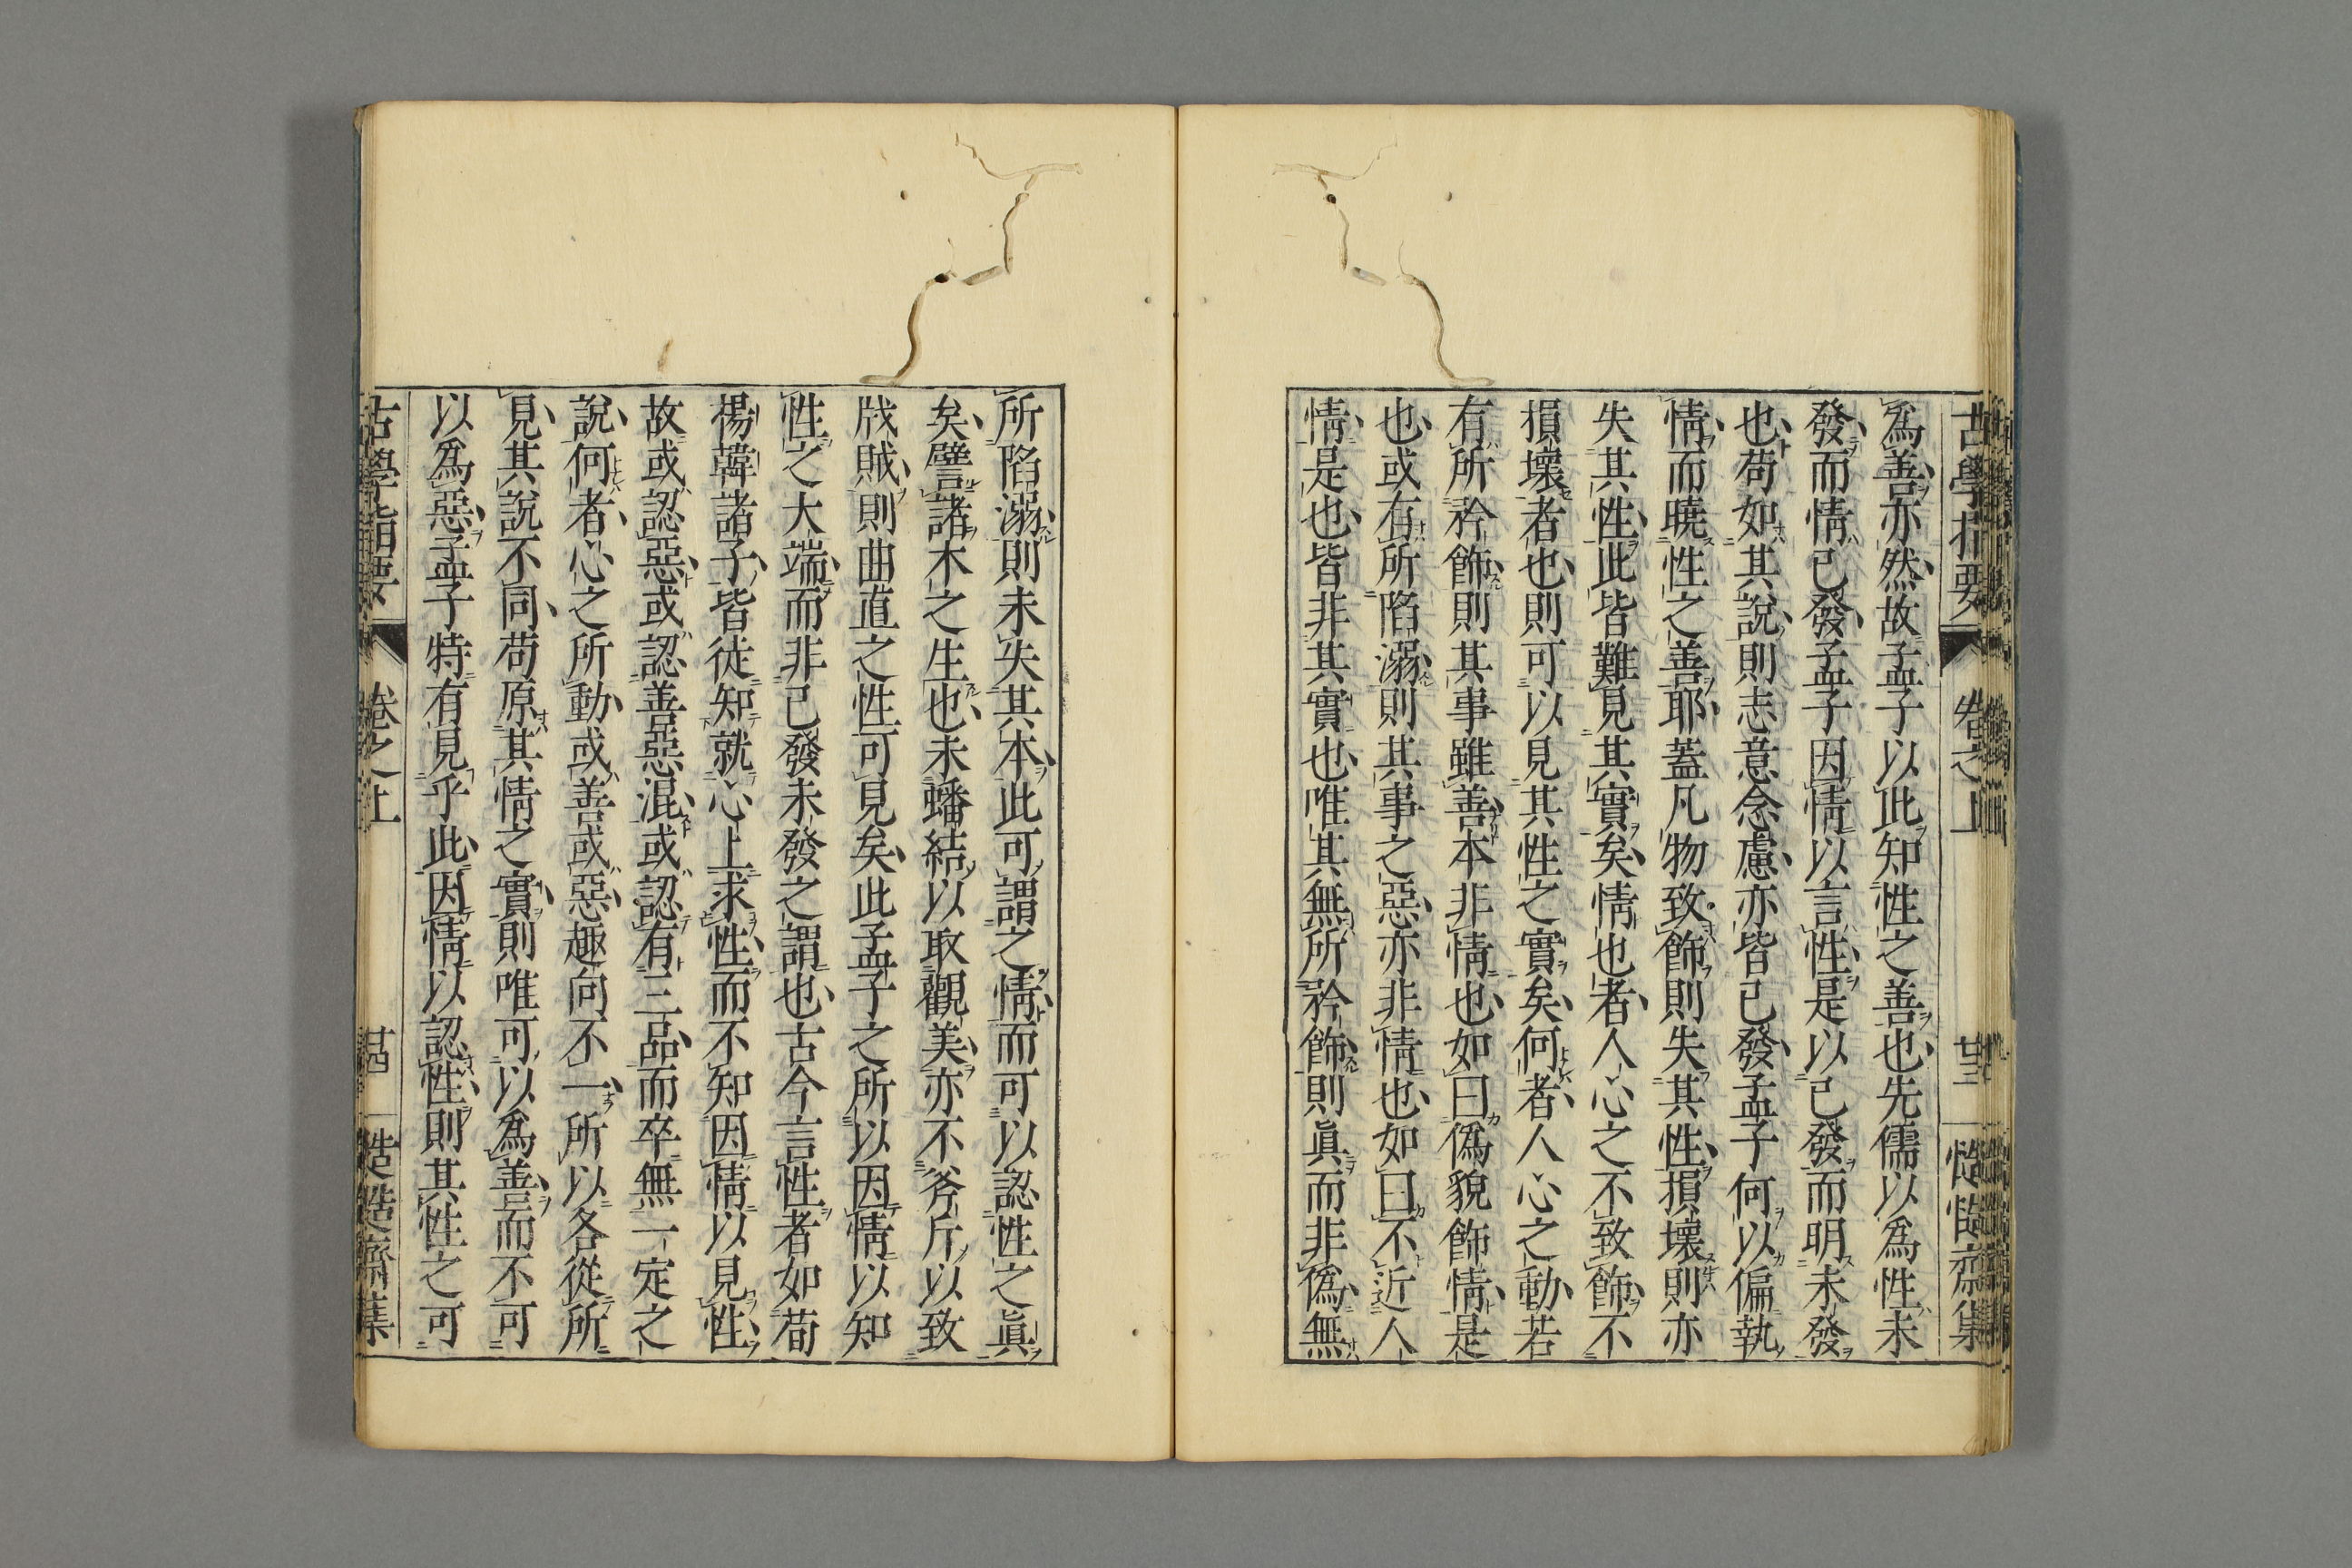 古學指要 卷之上 廿三 慥慥齋集
爲善亦然故孟子以此知性之善也先儒以爲性未
發而情已發孟子因情以言性是以已發而明未發
也苟如其說則志意念慮亦皆已發孟子何以偏執
情而曉性之善耶蓋凡物致飾則失其性損壞則亦
失其性此皆難見其實矣情也者人心之不致飾不
損壞者也則可以見其性之實矣何者人心之動若
有所矜飾則其事雖善本非情也如曰僞貌飾情是
也或有所陷溺則其事之惡亦非情也如曰不近人
情是也皆非其實也唯其無所矜飾則眞而非僞無
所陷溺則未失其本此可謂之情而可以認性之眞
矣譬諸木之生也未蟠結以取觀美亦不斧斤以致
戕賊則曲直之性可見矣此孟子之所以因情以知
性之大端而非已發未發之謂也古今言性者如荀
楊韓諸子皆徒知就心上求性而不知因情以見性
故或認惡或認善惡混或認有三品而卒無一定之
說何者心之所動或善或惡趣向不一所以各從所
見其說不同苟原其情之實則唯可以爲善而不可
以爲惡孟子特有見乎此因情以認性則其性之可
古學指要 卷之上 廿四 慥慥齋集